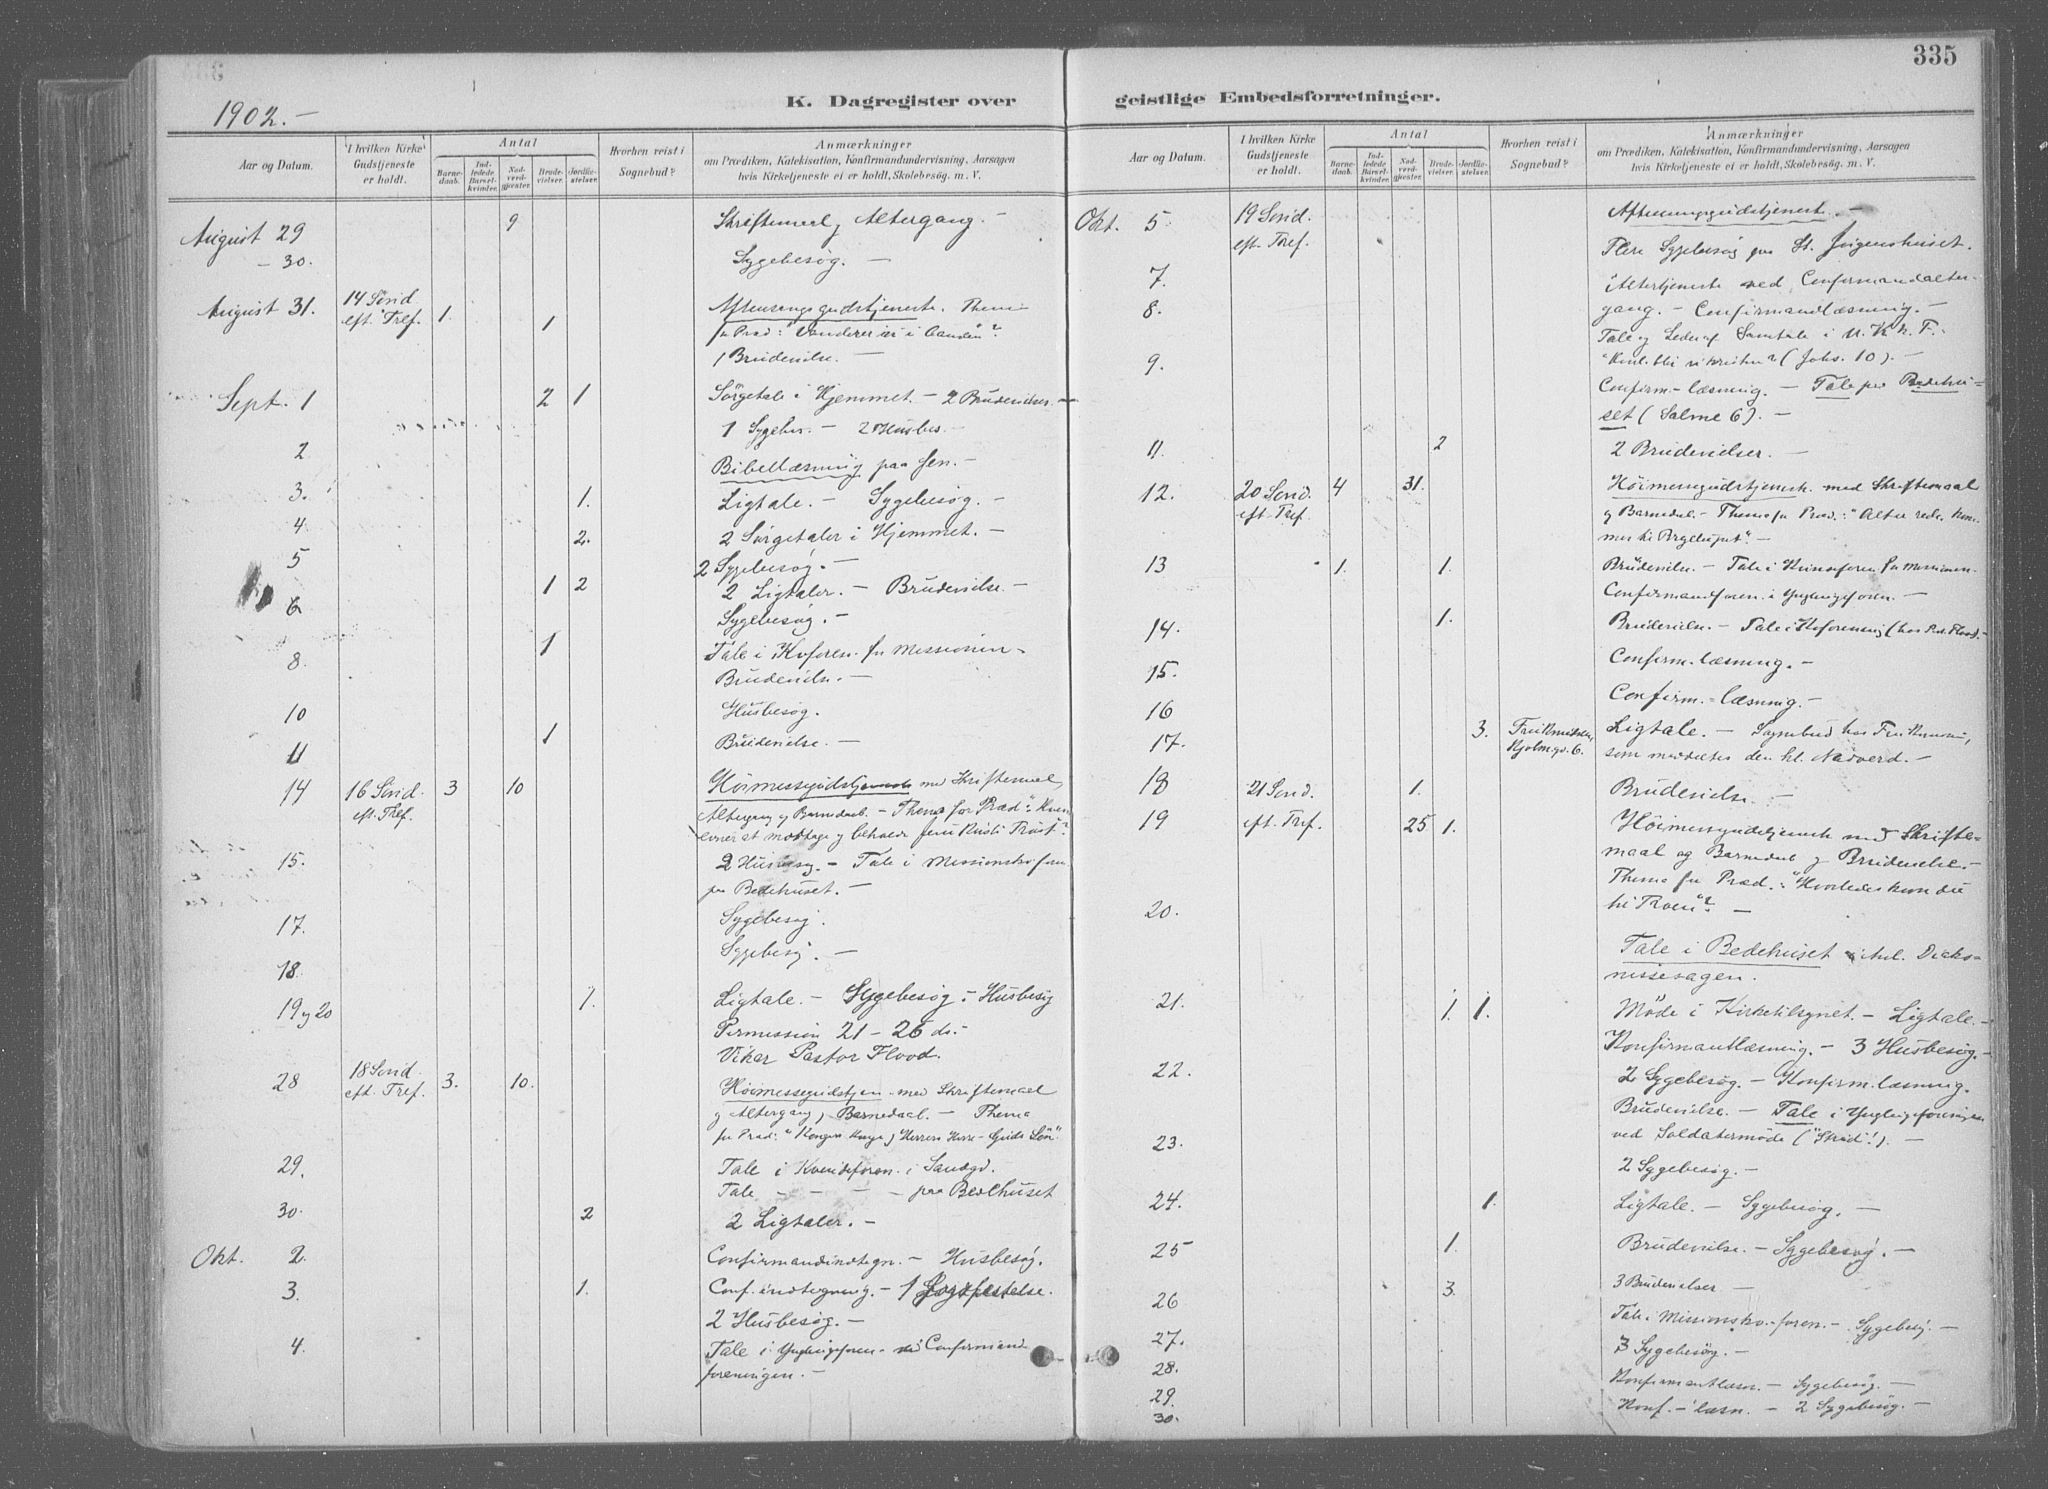 335
1902.-
K. Dagregister over
geistlige Embedsforretninger.
Aar og Datum.
I hvilken Kirke Gudstjeneste er holdt.
Antal
Barne-daab.
Ind-ledede Barsel-kvinder.
Nad-verd-gjester.
Brude-vielser.
Jordfæ-stelser.
Hvorhen reist i Sognebud?
Anmærkninger
om Prædiken, Katekisation, Konfirmandundervisning, Aarsagen
hvis Kirketjeneste ei er holdt, Skolebesøg m. V.
August 29 9 Skriftemaal og Altergang. -
- 30. Sygebesøg. -
August 31. 14 Sönd. eft. Tref. 1. 1 Aftensangsgudstjeneste. Thema
for Præd: "Vandrer vi i Aanden"?
1 Brudevielse. -
Sept. 1 2 1 Sörgetale i Hjemmet. - 2 Brudevielser. -
1 Sygebes. - 2 Husbes. -
2 Bibellæsning paa
3. 1. Ligtale. - Sygebesøg. -
4 2. 2 Sörgetaler i Hjemmet. -
5 2 Sygebesøg. -
1 2 2 Ligtaler. - Brudevielse. -
6 Sygebesøg. -
8 1 Tale i Kvforen. for Missionen -
Brudevielse. -
10 Husbesøg.
11 1 Brudevielse. -
14 16 Sönd. eft. Tref. 3 10 Höimessegudstjeneste med Skriftemaal,
Altergang og Barnedaab. - Thema for Præd:
at modtage og beholde Jesu Kristi Tröst?
15. 2 Husbesøg - Tale i Missionskvforen
paa Bedehuset. -
17. Sygebesøg.
18. Sygebesøg. -
19 og 20 1. Ligtale. - Sygebesøg - Husbesøg
Permission 21 - 26 ds. -
Vikar Pastor Flood.
28 18 Sönd. eft. Tref. 3. 10. Höimessegudstjen. med Skriftemaal
og Altergang, Barnedaab. - Thema
for Præd: "Kongers Konge og Herrers Herre - Guds Sön".
29. Tale i Kvindeforen. i
Tale - - - - paa Bedehuset
30. 2 2 Ligtaler. -
Okt. 2. Confirmandindtegn. - Husbesøg.
3. 1. Conf. indtegning. - 1 Jordfestelse.
2 Husbesøg. -
4. Tale i Ynglingeforen. Confirmand
foreningen. -
Aar og Datum.
I hvilken Kirke Gudstjeneste er holdt.
Antal
Barne-daab.
Ind-ledede Barsel-kvinder.
Nad-verd-gjester.
Brude-vielser.
Jordfæ-stelser.
Hvorhen reist i Sognebud?
Anmærkninger
om Prædiken, Katekisation, Konfirmandundervisning, Aarsagen
hvis Kirketjeneste ei er holdt, Skolebesög m. V.
Okt. 5 19 Sönd. eft. Tref. Aftensangsgudstjeneste. -
Flere Sygebesøg paa St. Jörgenshuset.
7. Altertjeneste ved Confirmandalter-
8. gang. - Confirmandlæsning. -
Tale og Leder af Samtale i U. K. K. F.
(Johs. 10). -
9. Confirm-læsning. - Tale paa Bedehu-
set (Salme 6). -
11. 2 2 Brudevielser. -
12. 20 Sönd. eft. Tref. 4 31. Höimessegudstjeneste med Skriftemaal
og Barnedaab. - Thema for Præd.: "Alt er rede, kom-
mer til Brylluppet". -
13 1. 1. Brudevielse. - Tale i Kvindeforen. for Missionen.
Confirmandforen. i Ynglingeforen. -
14. 1. Brudevielse. - Tale i Kvforening (hos Past. Flood). -
15. Confirm. læsning. -
16 Confirm. - læsning. -
17. 3. Fru Knudsen, Ligtale. - Sognebud hos Fru
6. som meddeltes den hl. Nadverd. -
18 21 Sönd. 1. Brudevielse. -
19 eft. Tref. 25 1. Höimessegudstjeneste med Skrifte-
maal og Barnedaab og Brudevielse. -
Thema for Præd.: "Hvorledes kom du
til Troen"? -
20. Tale i Bedehuset i Anl. Diako-
nissesagen.
21. 1. 1. Möde i Kirketilsynet. - Ligtale. -
Konfirmantlæsning. - 3 Husbesøg. -
22. 2 Sygebesøg. - Konfirm. læsning.
Brudevielse. - Tale i Ynglingeforeningen
23. ved Soldatermöde ("Strid"!). -
2 Sygebesøg. -
24. 1. Ligtale. - Sygebesøg. -
25 1. Brudevielse. - Sygebesøg. -
26 3. 3 Brudevielser -
27. Tale i Missionskv.-foren. - Sygebesøg. -
28. 3 Sygebesøg. -
29. Konfirmantlæsn. - Sygebesøg. -
30. Konf. - læsn. - 2 Sygebesøg. -